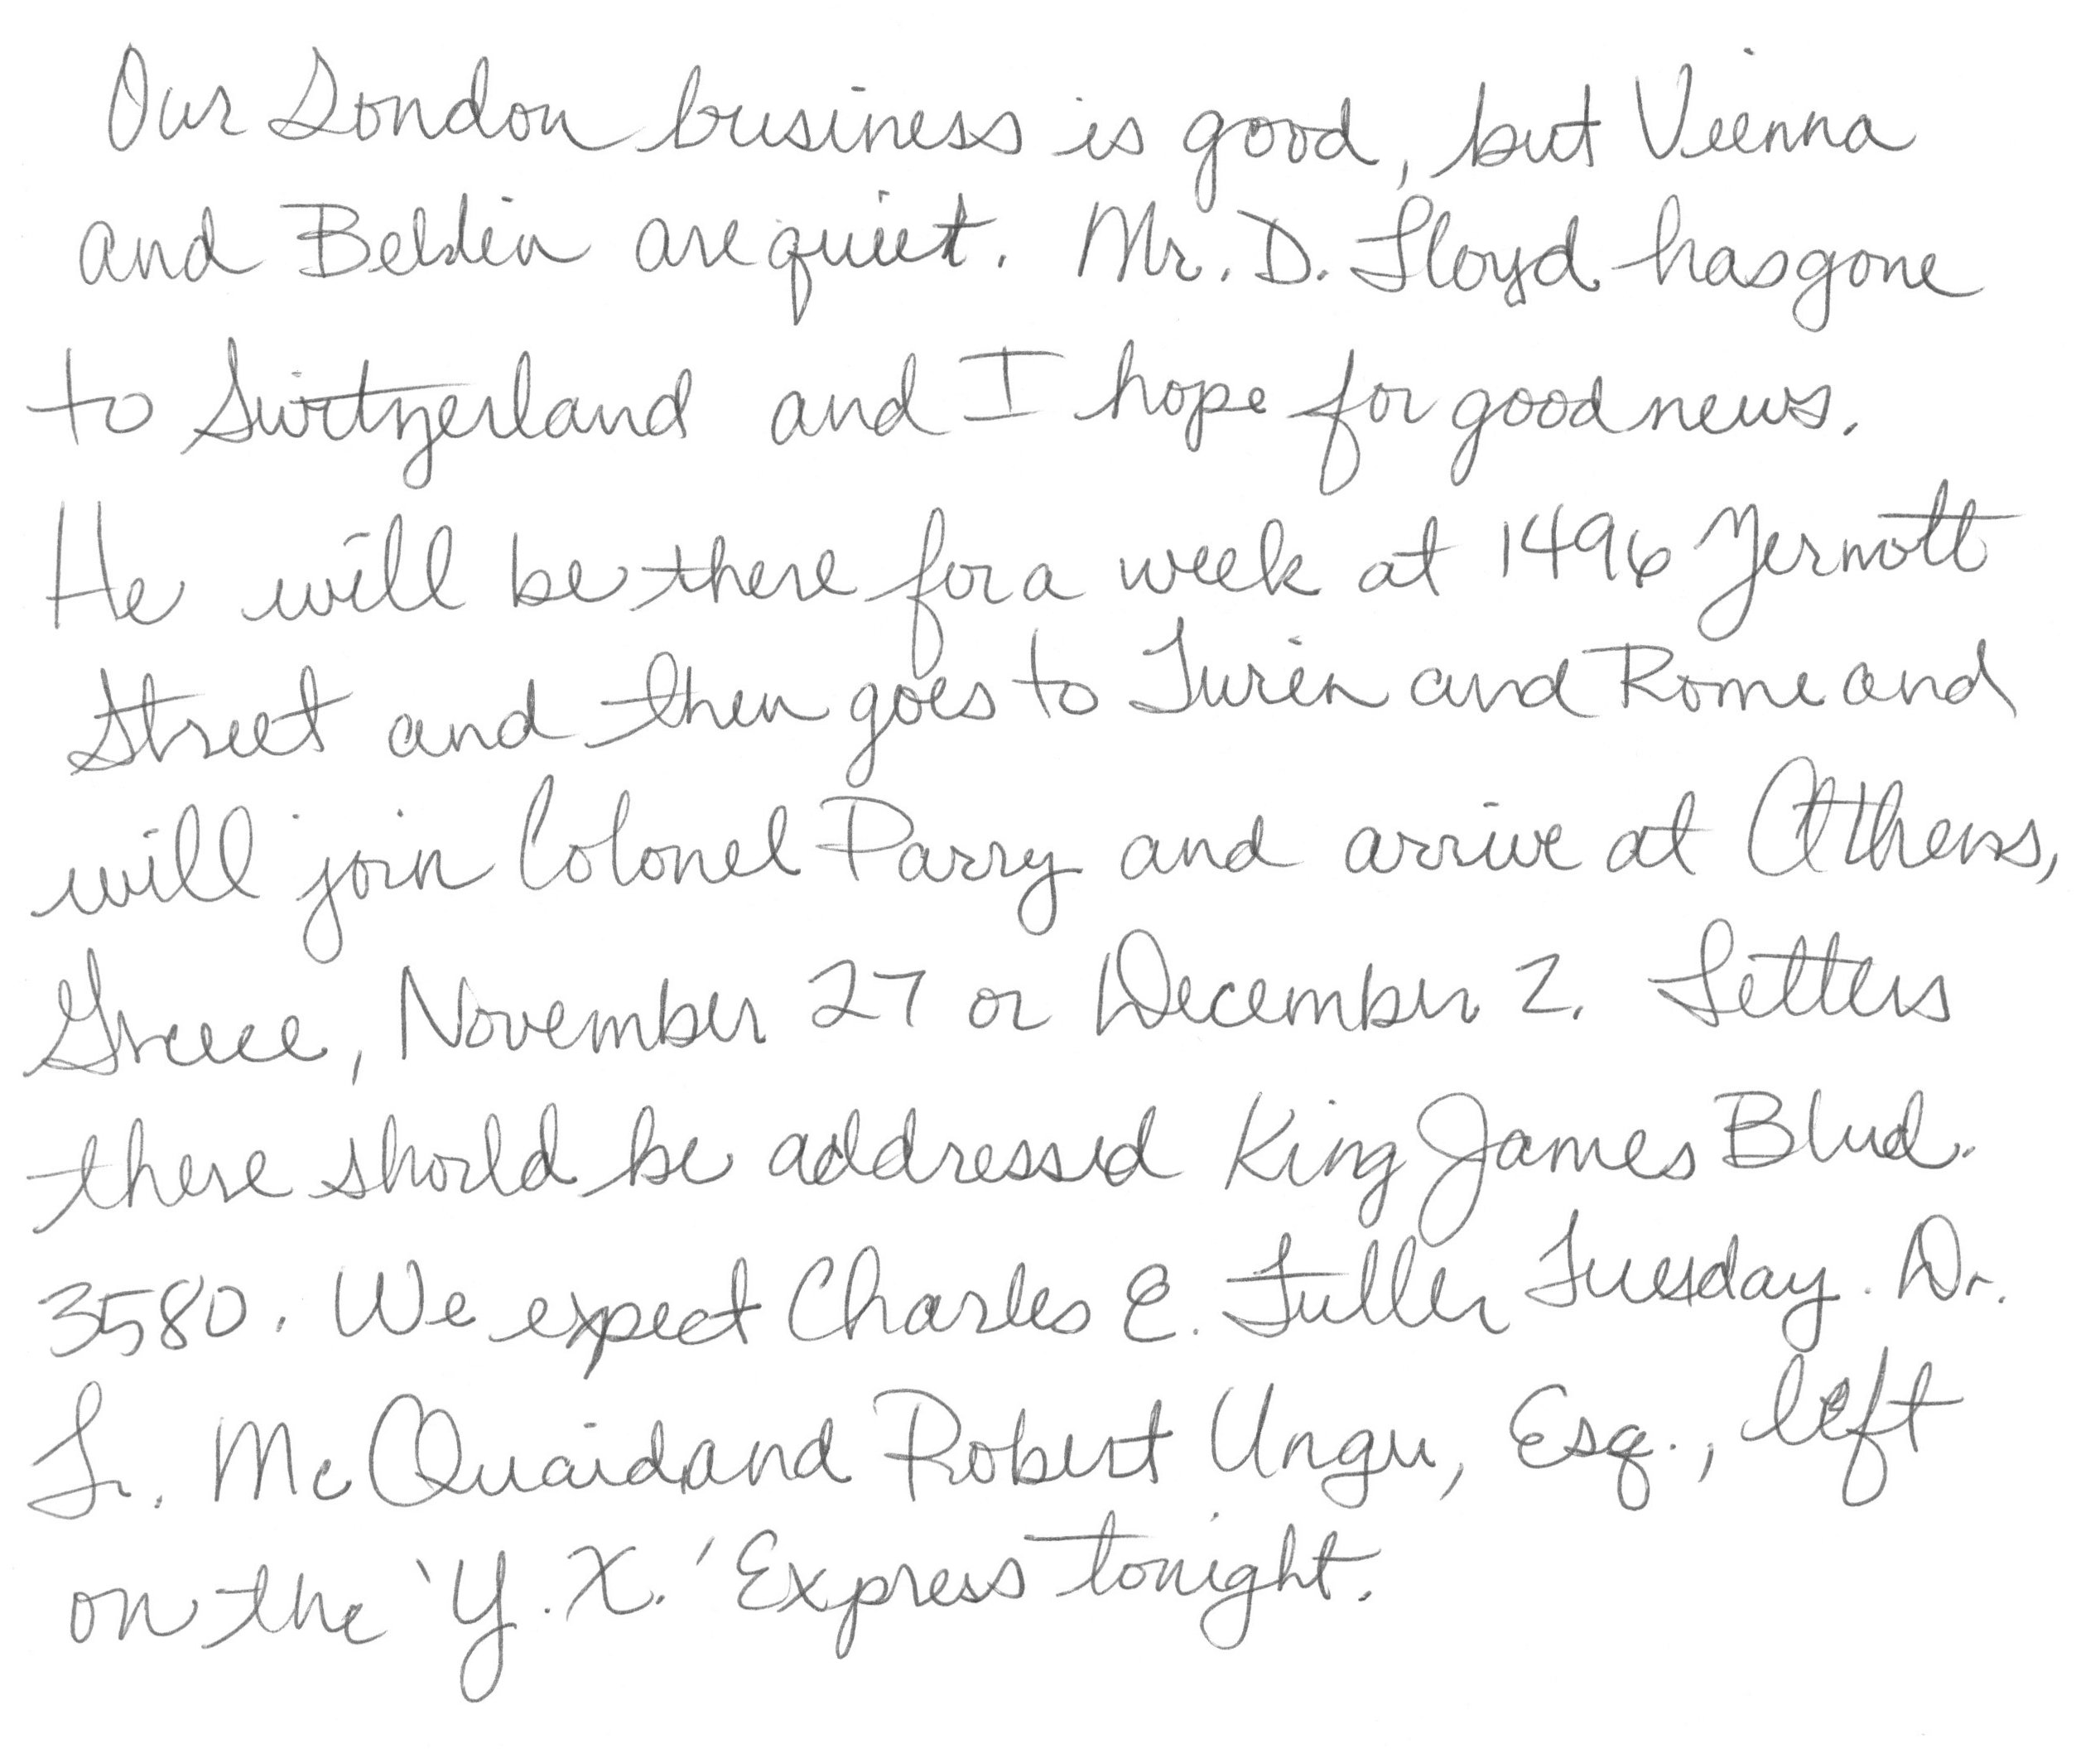 Our London business is good, but Vienna
and Beldin are quiet. Mr. D. Lloyd has gone
to Switzerland and I hope for good news.
He will be there for a week at 1496 Zermott
Street and then goes to Turin and Rome and
will join Colonel Parry and arrive at Athens,
Greece, November 27 or December 2. Letters
there should be addressed King James Blvd.
3580. We expect Charles E. Fuller Tuesday. Dr.
L. McQuaid and Robert Unger, Esq., left
on the 'Y. X.' Express tonight.